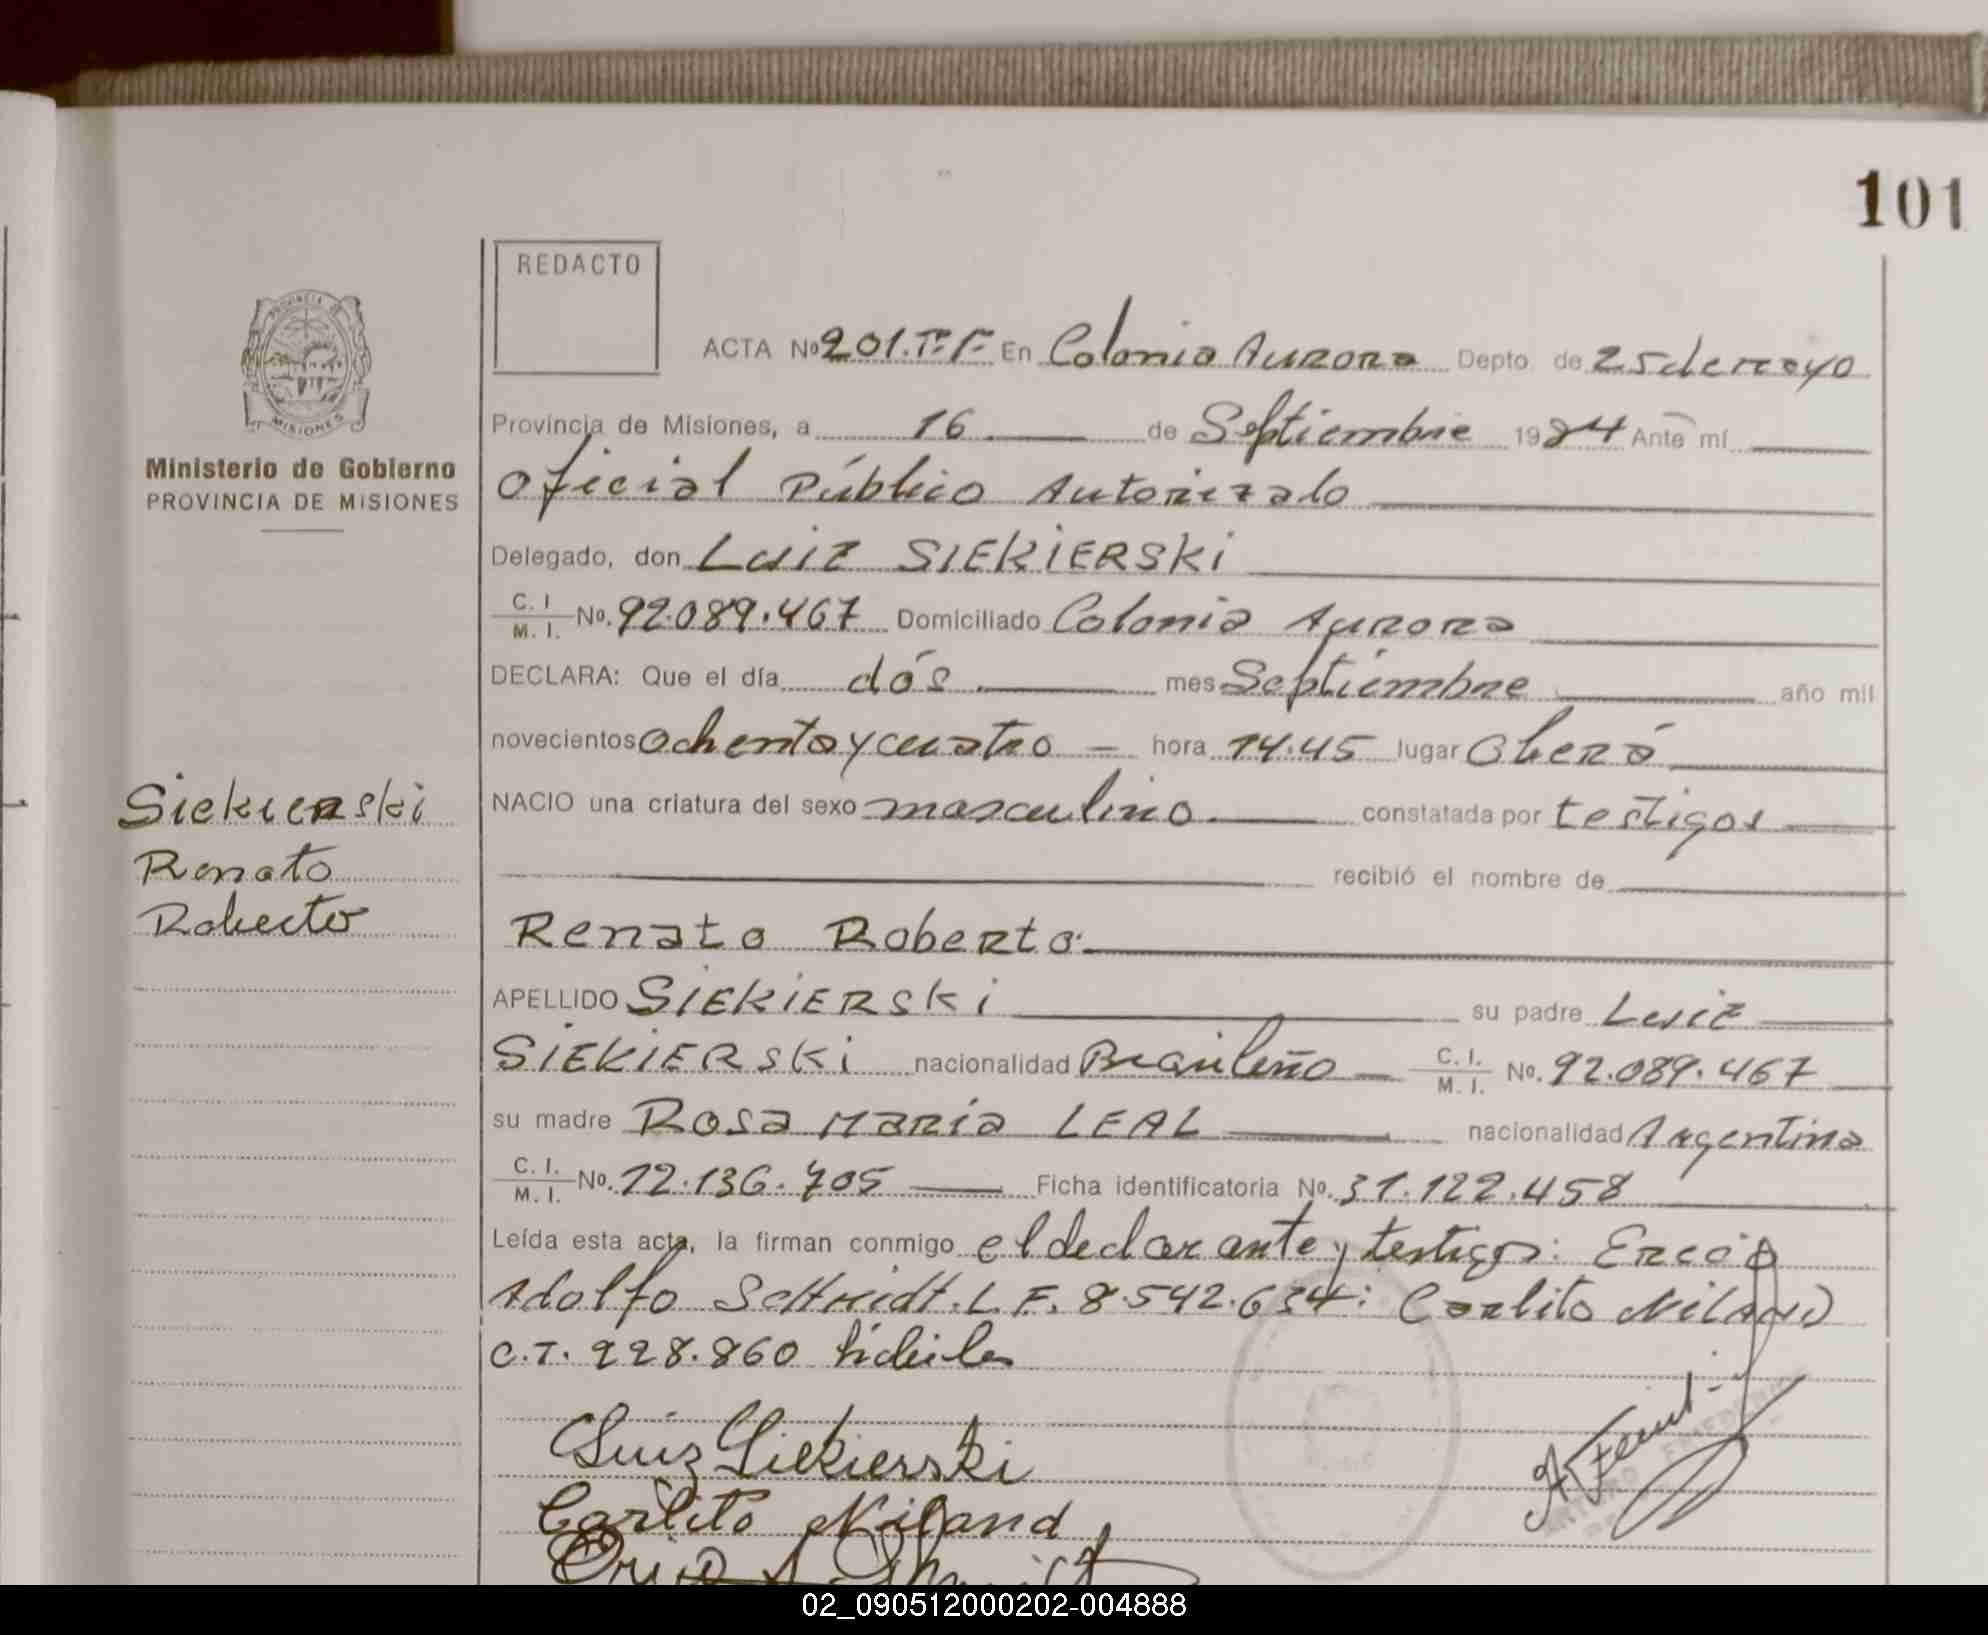 101
REDACTO
ACTA Nº 201.Tº.Fº En Colonia Aurora Depto. de 25 de mayo
Provincia de Misiones, a 16 de Septiembre 1984 Ante mí
Oficial Público Autorizado
Ministerio de Gobierno
PROVINCIA DE MISIONES
Delegado, don Luiz SIEKIERSKI
C. I. M. I. No. 92.089.467 Domiciliado Colonia Aurora
DECLARA: Que el día dós mes Septiembre año mil
novecientos ochenta y cuatro hora 14.45 lugar Oberá
NACIO una criatura del sexo masculino constatada por testigos
recibió el nombre de
Siekierski
Renato
Roberto
Renato Roberto
APELLIDO SIEKIERSKI su padre Luiz
SIEKIERSKI nacionalidad Brasileño C. I. M. I. No. 92.089.467
su madre Rosa María LEAL nacionalidad Argentina
C. I. M. I. No. 12.136.705 Ficha identificatoria No. 31.122.458
Leída esta acta, la firman conmigo el declarante y testigos:
Adolfo Schmidt. L.E. 8.542.634: Carlito Niland
C.I. 228.860 hábiles
Luiz Siekierski
Carlito Niland
02_090512000202-004888